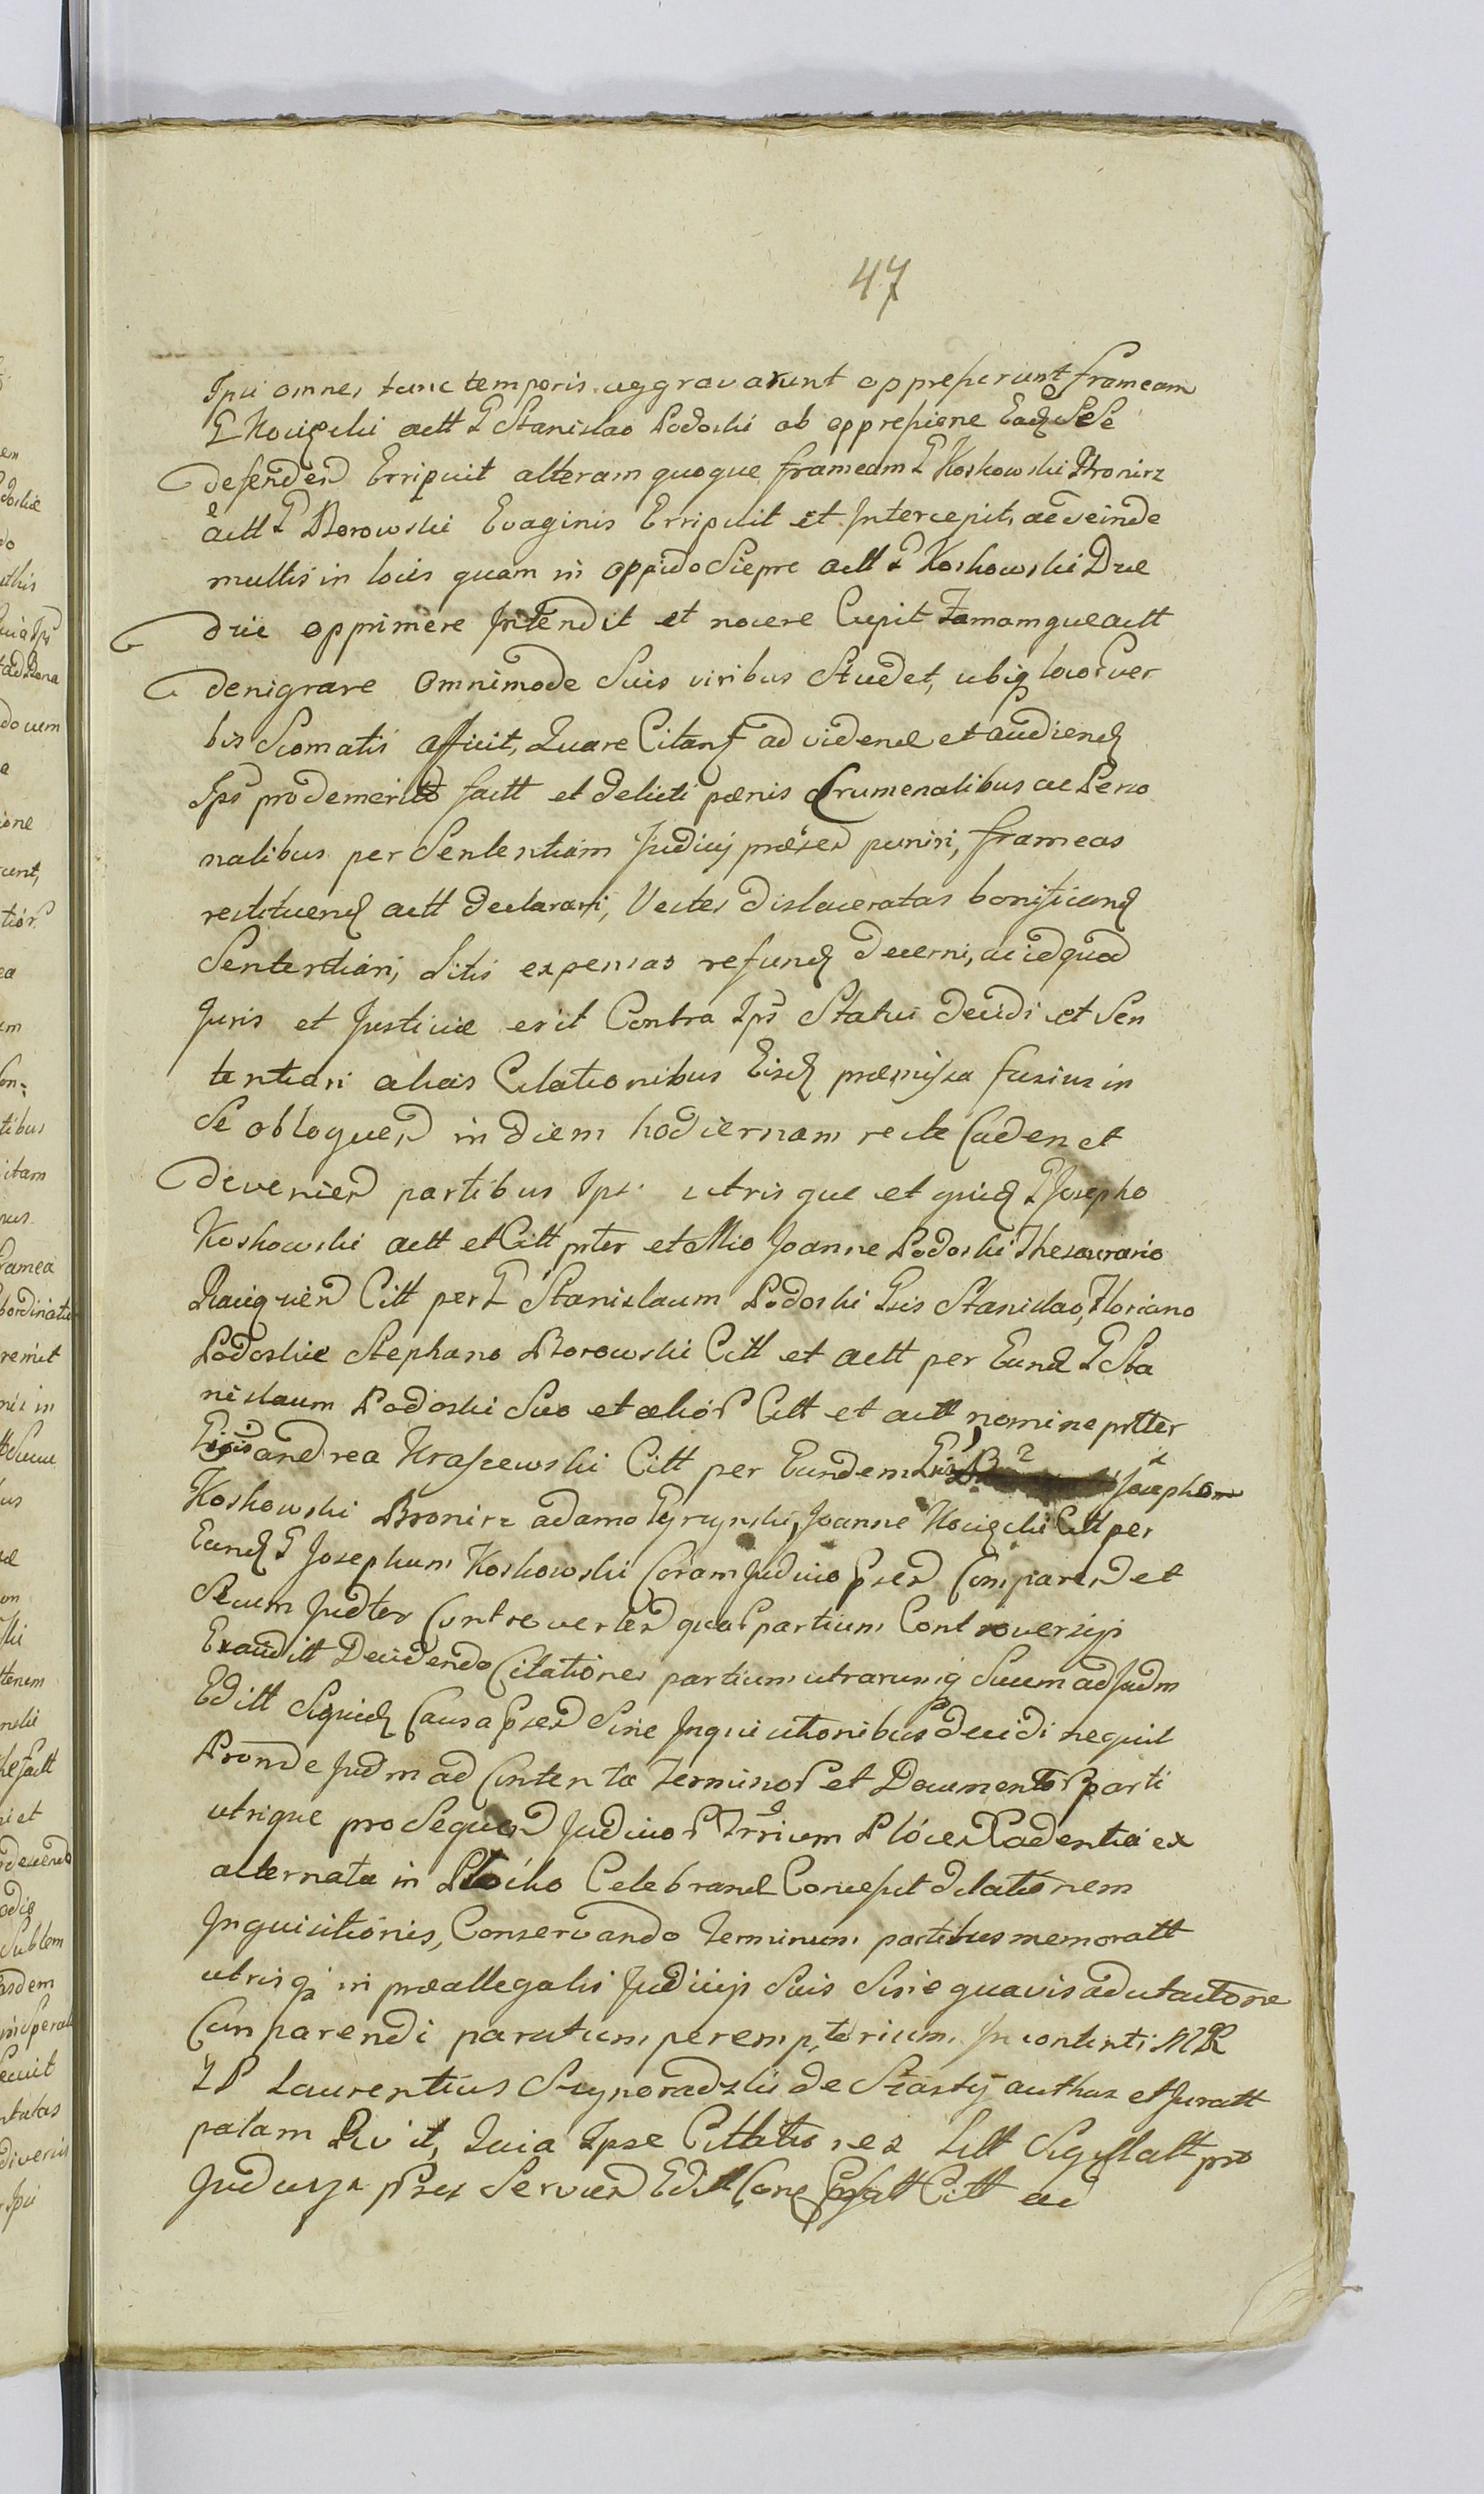 47
Ipsi omnes tunc temporis aggravarunt oppresserunt frameam
G Kocięcki actt G Stanislao Podoski ab oppressione Eadq SeSe
defenden Erripuit alteram quoque frameam G Koskowski Hronisz
actt G Borowski Evaginis Erripuit et Intercepit, ac deinde
multis in locis quam in oppido Siepre actt G Koskowski Due
drie opprimere Intendit et nocere Cupit Famamque actt
denigrare omnimode Suis viribus Studet, ubiq locor ver
bis Scomatis afficit, Quare Citant ad vidend et audiend
Ips pro demerito factt et delicti pænis Crumenalibus ac Perso
nalibus per Sententiam Judicij præsen puniri, frameas
restituend actt declarari, Vestes dislaceratas bonificand
Sententiari, Litis expensas refund decerni, ac id quod
Juris et Justiciæ erit Contra Ips Statui decidi et Sen
tentiari aliais Citationibus Eisd præmissa fusius in
Se obloquen in diem hodiernam recte Caden et
devenien partibus Ips utrisque et quid G Josepho
Koskowski actt et Citt pter et Mio Joanne Podoski Thesaurario
Raciąźen Citt per G Stanislaum Podoski Gsis Stanislao, Floriano
Podoskie Stephano Borowski Citt et actt per Eund G Sta
nislaum Podoski Suo et alior Citt et actt nomine ptter
andrea Kraszewski Citt per Eundem Josephom
Koskowski Bronisz adamo Pyrzynski, Joanne Kocięcki Citt per
Eund G Josephum Koskowski Coram Judicio Psen Comparen et
Secum Judter Controverten quar partium Controversijs
Exauditt Decidendo Citationes partium utrarumq Suum ad Judm
Editt Siquid Causa Psen Sine Inquisitionibus decidi nequit
Proinde Judm ad Contenta Terminor et Documentor parti
utrique pro Sequen Judicior Trrium Plocen Cadentia ex
alternata in Płocko Celebrand Concessit dilationem
Inquisitionis, Conservando Terminum partibus memoratt
utrisq in præallegatis Judicijs Suis Sine quavis adcitatione
Comparendi paratum peremptorium. In continenti MR
GP Laurentius Szynoradzki de Szasty author et Juratt
palam Rvit, Quia Ipse Citationes Litt Sigillatt pro
Judicys Pres Servien Editt Cone Citt ad